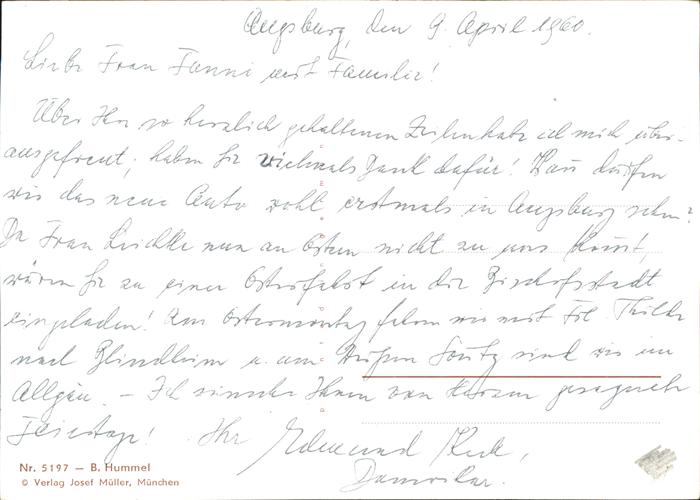 Augsburg, den 9. April 1960.
Liebe Frau Fanni mit Familie!
Über Ihre so herzlich gehaltenen Zeilen habe ich mich über-
aus gefreut; haben Sie vielmals Dank dafür! Wann dürfen
wir das neue Auto wohl erstmals in Augsburg sehn?
Da Frau nun an Ostern nicht zu uns kommt,
wären Sie zu einer Osterfahrt in die Bischofsstadt
eingeladen! Am Ostermontag fahren wir mit Frl. Thilde
nach Blindheim u. am Weißen Sonntag sind wir im
Allgäu. – Ich wünsche Ihnen von Herzen gesegnete
Feiertage! Ihr Edmund
Nr. 5197 — B. Hummel
© Verlag Josef Müller, München